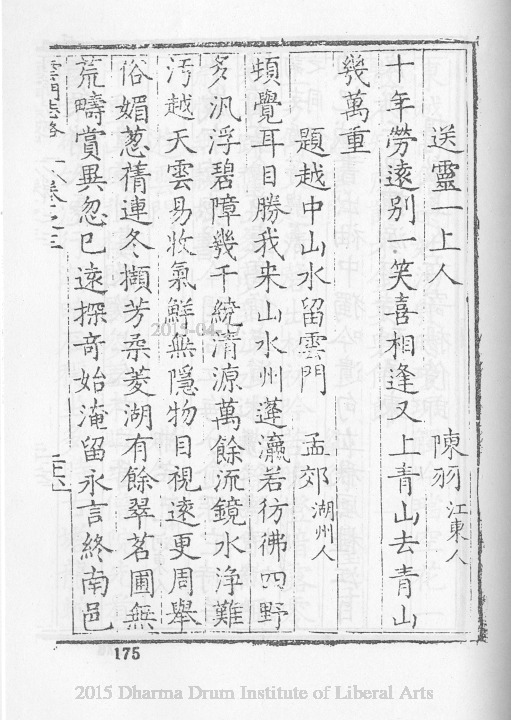 送靈一上人　陳羽 江東人
十年勞遠别一笑喜相逢又上青山去青山
幾萬重
題越中山水留雲門　孟郊 湖州人
頓覺耳目勝我来山水州蓬瀛若彷彿四野
多汎浮碧障幾千繞清源萬餘流鏡水浄難
汚越天雲易收氣鮮無隱物目視遠更周舉
俗媚葱蒨連冬擷芳柔菱湖有餘翠茗圃無
荒疇賞異忽已遠探奇始淹留永言終南邑
雲門志畧 卷之三
175
2015 Dharma Drum Institute of Liberal Arts